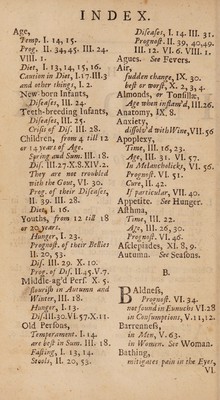 INDEX.
Age,
Temp. I. 14, 15.
Prog. II. 34, 45. III. 24.
VIII. 1.
Diet, I. 13, 14, 15, 16.
Caution in Diet, I. 17. III. 3
and other things, I. 2.
New-born Infants,
Diseases, III. 24.
Teeth-breeding Infants,
Diseases, III. 25.
Crisis of Dis. III. 28.
Children, from 4 till 12
or 14 years of Age.
Spring and Sum. III. 18.
Dis. III. 27. X. 8. XIV. 2.
They are not troubled
with the Gout, VI. 30.
Prog. of their Diseases,
II. 39. III. 28.
Diet, I. 16.
Youths, from 12 till 18
or 20 years.
Hunger, I. 23.
Prognost. of their Bellies
II. 20, 53.
Dis. III. 29. X. 10.
Prog. of Dis. II. 45. V. 7.
Middle-ag'd Pers. X. 5.
flourish in Autumn and
Winter, III. 18.
Hunger, I. 13.
Dis. III. 30. VI. 57. X. 11.
Old Persons,
Temperament. I. 14.
are best in Sum. III. 18.
Fasting, I. 13, 14.
Stools, II. 20, 53.
Diseases, I. 14. III. 31.
Prognost. II. 39, 40, 49.
III. 12. VI. 6. VIII. 1.
Agues. See Fevers.
Air,
sudden change, IX. 30.
best or worst, X. 2, 3, 4.
Almonds, or Tonsillæ,
Age when inflam'd, III. 26.
Anatomy, IX. 8.
Anxiety,
dissolv'd with Wine, VII. 56
Apoplexy,
Time, III. 16, 23.
Age, III. 31. VI. 57.
In Melancholicks, VI. 56.
Prognost. VI. 51.
Cure, II. 42.
If particular, VII. 40.
Appetite. See Hunger.
Asthma,
Time, III. 22.
Age, III. 26, 30.
Prognost. VI. 46.
Asclepiades, XI. 8, 9.
Autumn. See Seasons.
B.
Baldness,
Prognost. VI. 34.
not found in Eunuchs VI. 28
in Consumptions, V. 11, 12.
Barrenness,
in Men, V. 63.
in Women. See Woman.
Bathing,
mitigates pain in the Eyes,
VI.